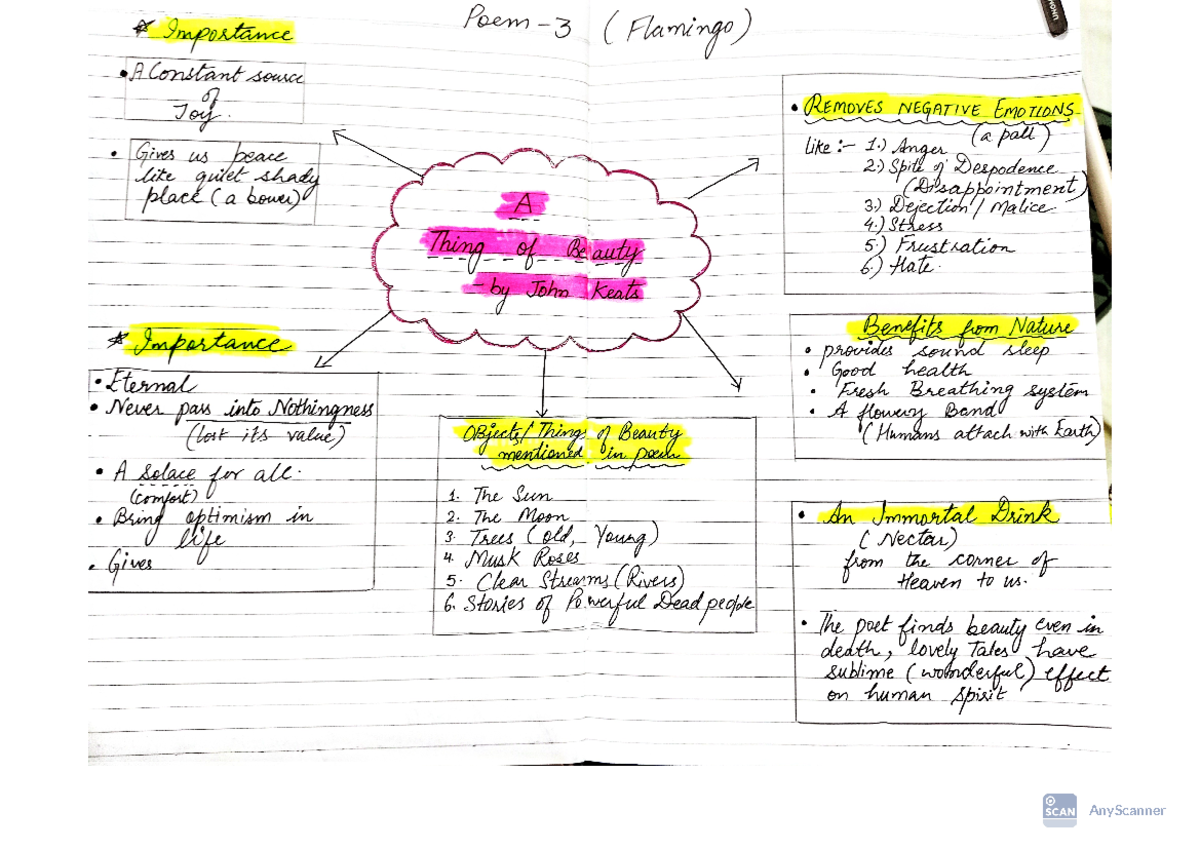 Poem-3 (Flamingo)
* Importance
• A Constant source
of
Joy.
• Gives us peace
like quiet shady
place (a bower)
A
Thing of Beauty
- by John Keats
• REMOVES NEGATIVE EMOTIONS
(a pall)
like :- 1.) Anger
2.) Spite of Despodence
(Disappointment)
3.) Dejection / Malice
4.) Stress
5.) Frustration
6.) Hate.
* Importance
• Eternal
• Never pass into Nothingness
(lost its value)
• A solace for all.
(comfort)
• Bring optimism in
life
• Gives
Objects/Things of Beauty
mentioned in poem
1. The Sun
2. The Moon
3. Trees (old, Young)
4. Musk Roses
5. Clear Streams (Rivers)
6. Stories of Powerful Dead people
Benefits from Nature
• provides sound sleep
• Good health
• Fresh Breathing system
• A flowery Band
(Humans attach with Earth)
• An Immortal Drink
(Nectar)
from the corner of
Heaven to us.
• The poet finds beauty even in
death, lovely Tales have
sublime (wonderful) effect
on human spirit
SCAN AnyScanner